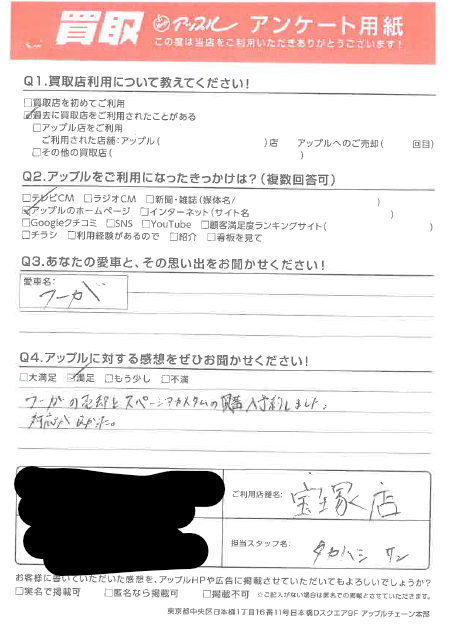 買取 アップル アンケート用紙
この度は当店をご利用いただきありがとうございます!
Q1.買取店利用について教えてください!
□買取店を初めてご利用
☑過去に買取店をご利用されたことがある
□アップル店をご利用
ご利用された店舗:アップル( )店 アップルへのご売却( 回目)
□その他の買取店( )
Q2.アップルをご利用になったきっかけは?(複数回答可)
□テレビCM □ラジオCM □新聞・雑誌(媒体名/ )
☑アップルのホームページ □インターネット(サイト名 )
□Googleクチコミ □SNS □YouTube □顧客満足度ランキングサイト( )
□チラシ □利用経験があるので □紹介 □看板を見て
Q3.あなたの愛車と、その思い出をお聞かせください!
愛車名:
フーガ
Q4.アップルに対する感想をぜひお聞かせください!
□大満足 ☑満足 □もう少し □不満
フーガの売却とスペーシアカスタムの購入予約しました。
対応が良かった。
ご利用店舗名: 宝塚店
担当スタッフ名: タカハシ サン
お客様に書いていただいた感想を、アップルHPや広告に掲載させていただいてもよろしいでしょうか?
□実名で掲載可 □匿名なら掲載可 □掲載不可 ※ご記入がない場合は匿名での掲載とさせていただきます。
東京都中央区日本橋1丁目16番11号日本橋Dスクエア9F アップルチェーン本部